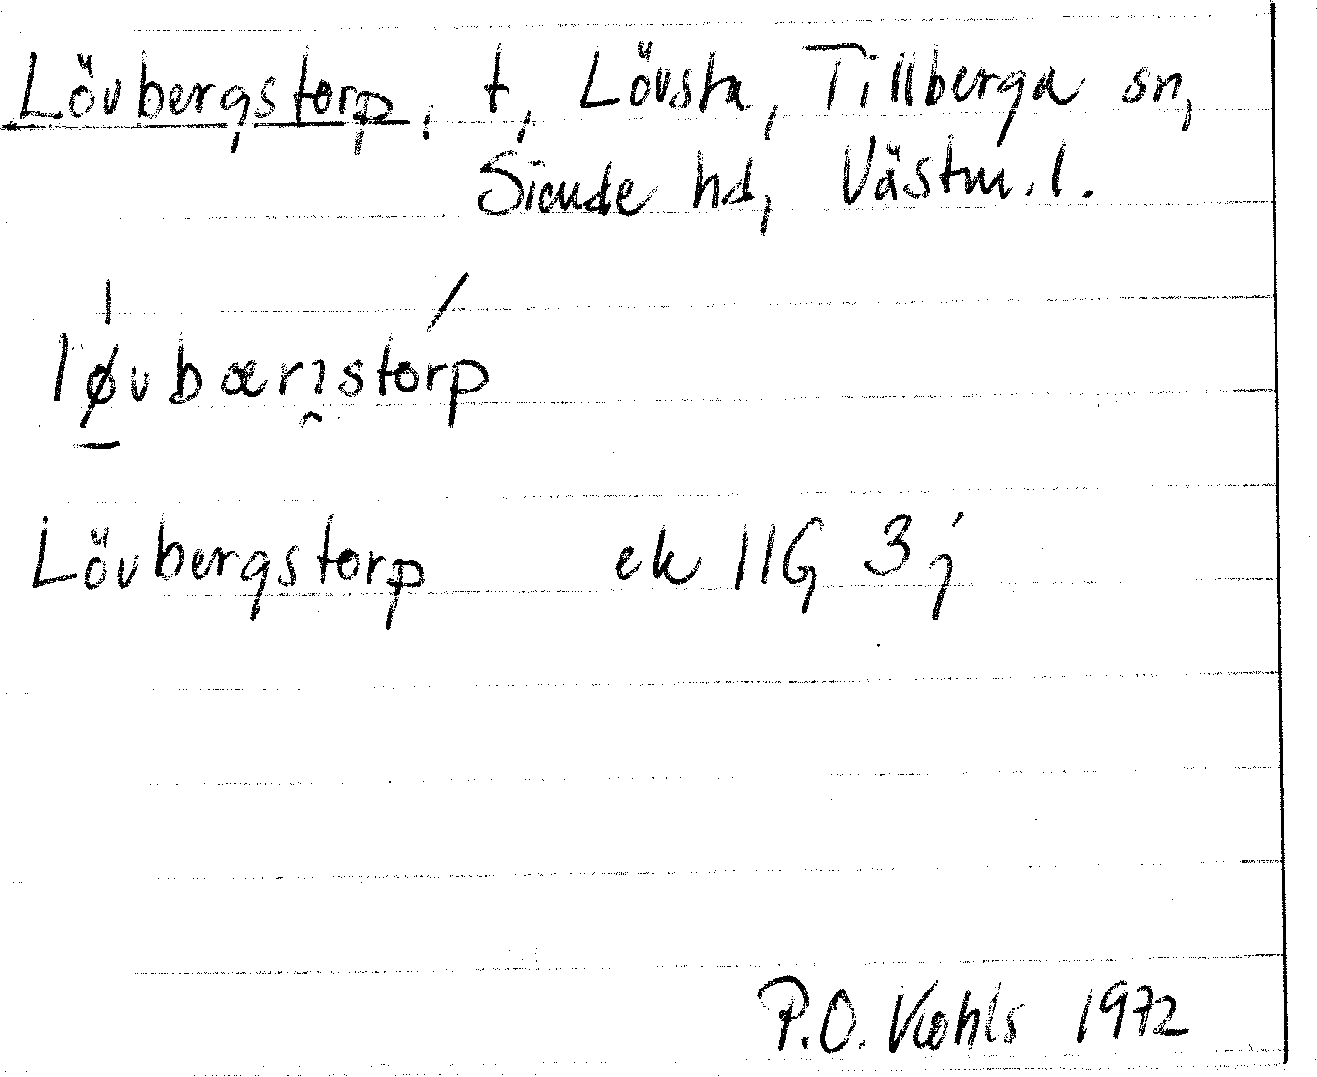 Lövbergstorp, t, Lövsta, Tillberga sn,
Siende hd, Västm. l.
løvbærı̯storp
Lövbergstorp ek 11G 3j
P.O. Kohls 1972